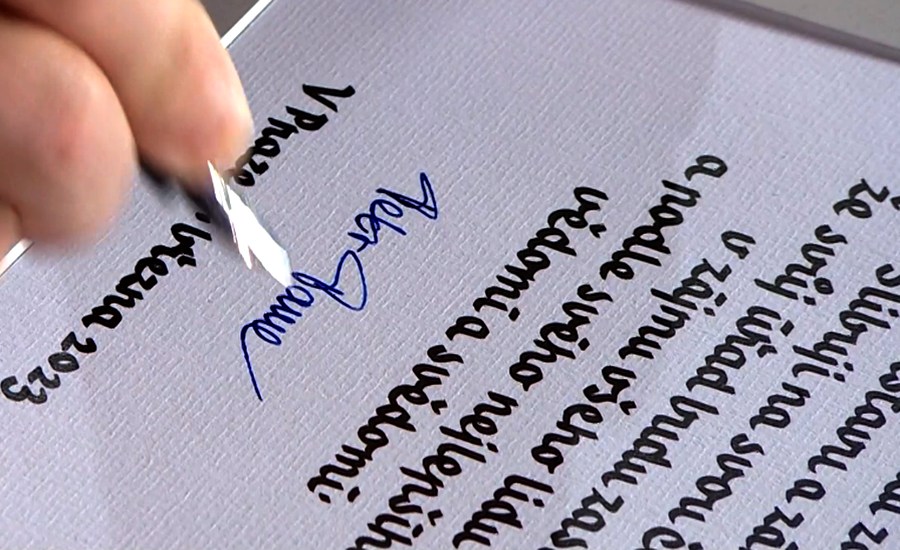 ústavu a zá
Slibuji na svou č
že svůj úřad budu zas
v zájmu všeho lidu
a podle svého nejlepšíh
vědomí a svědomí.
Petr Pave
V Praze března 2023